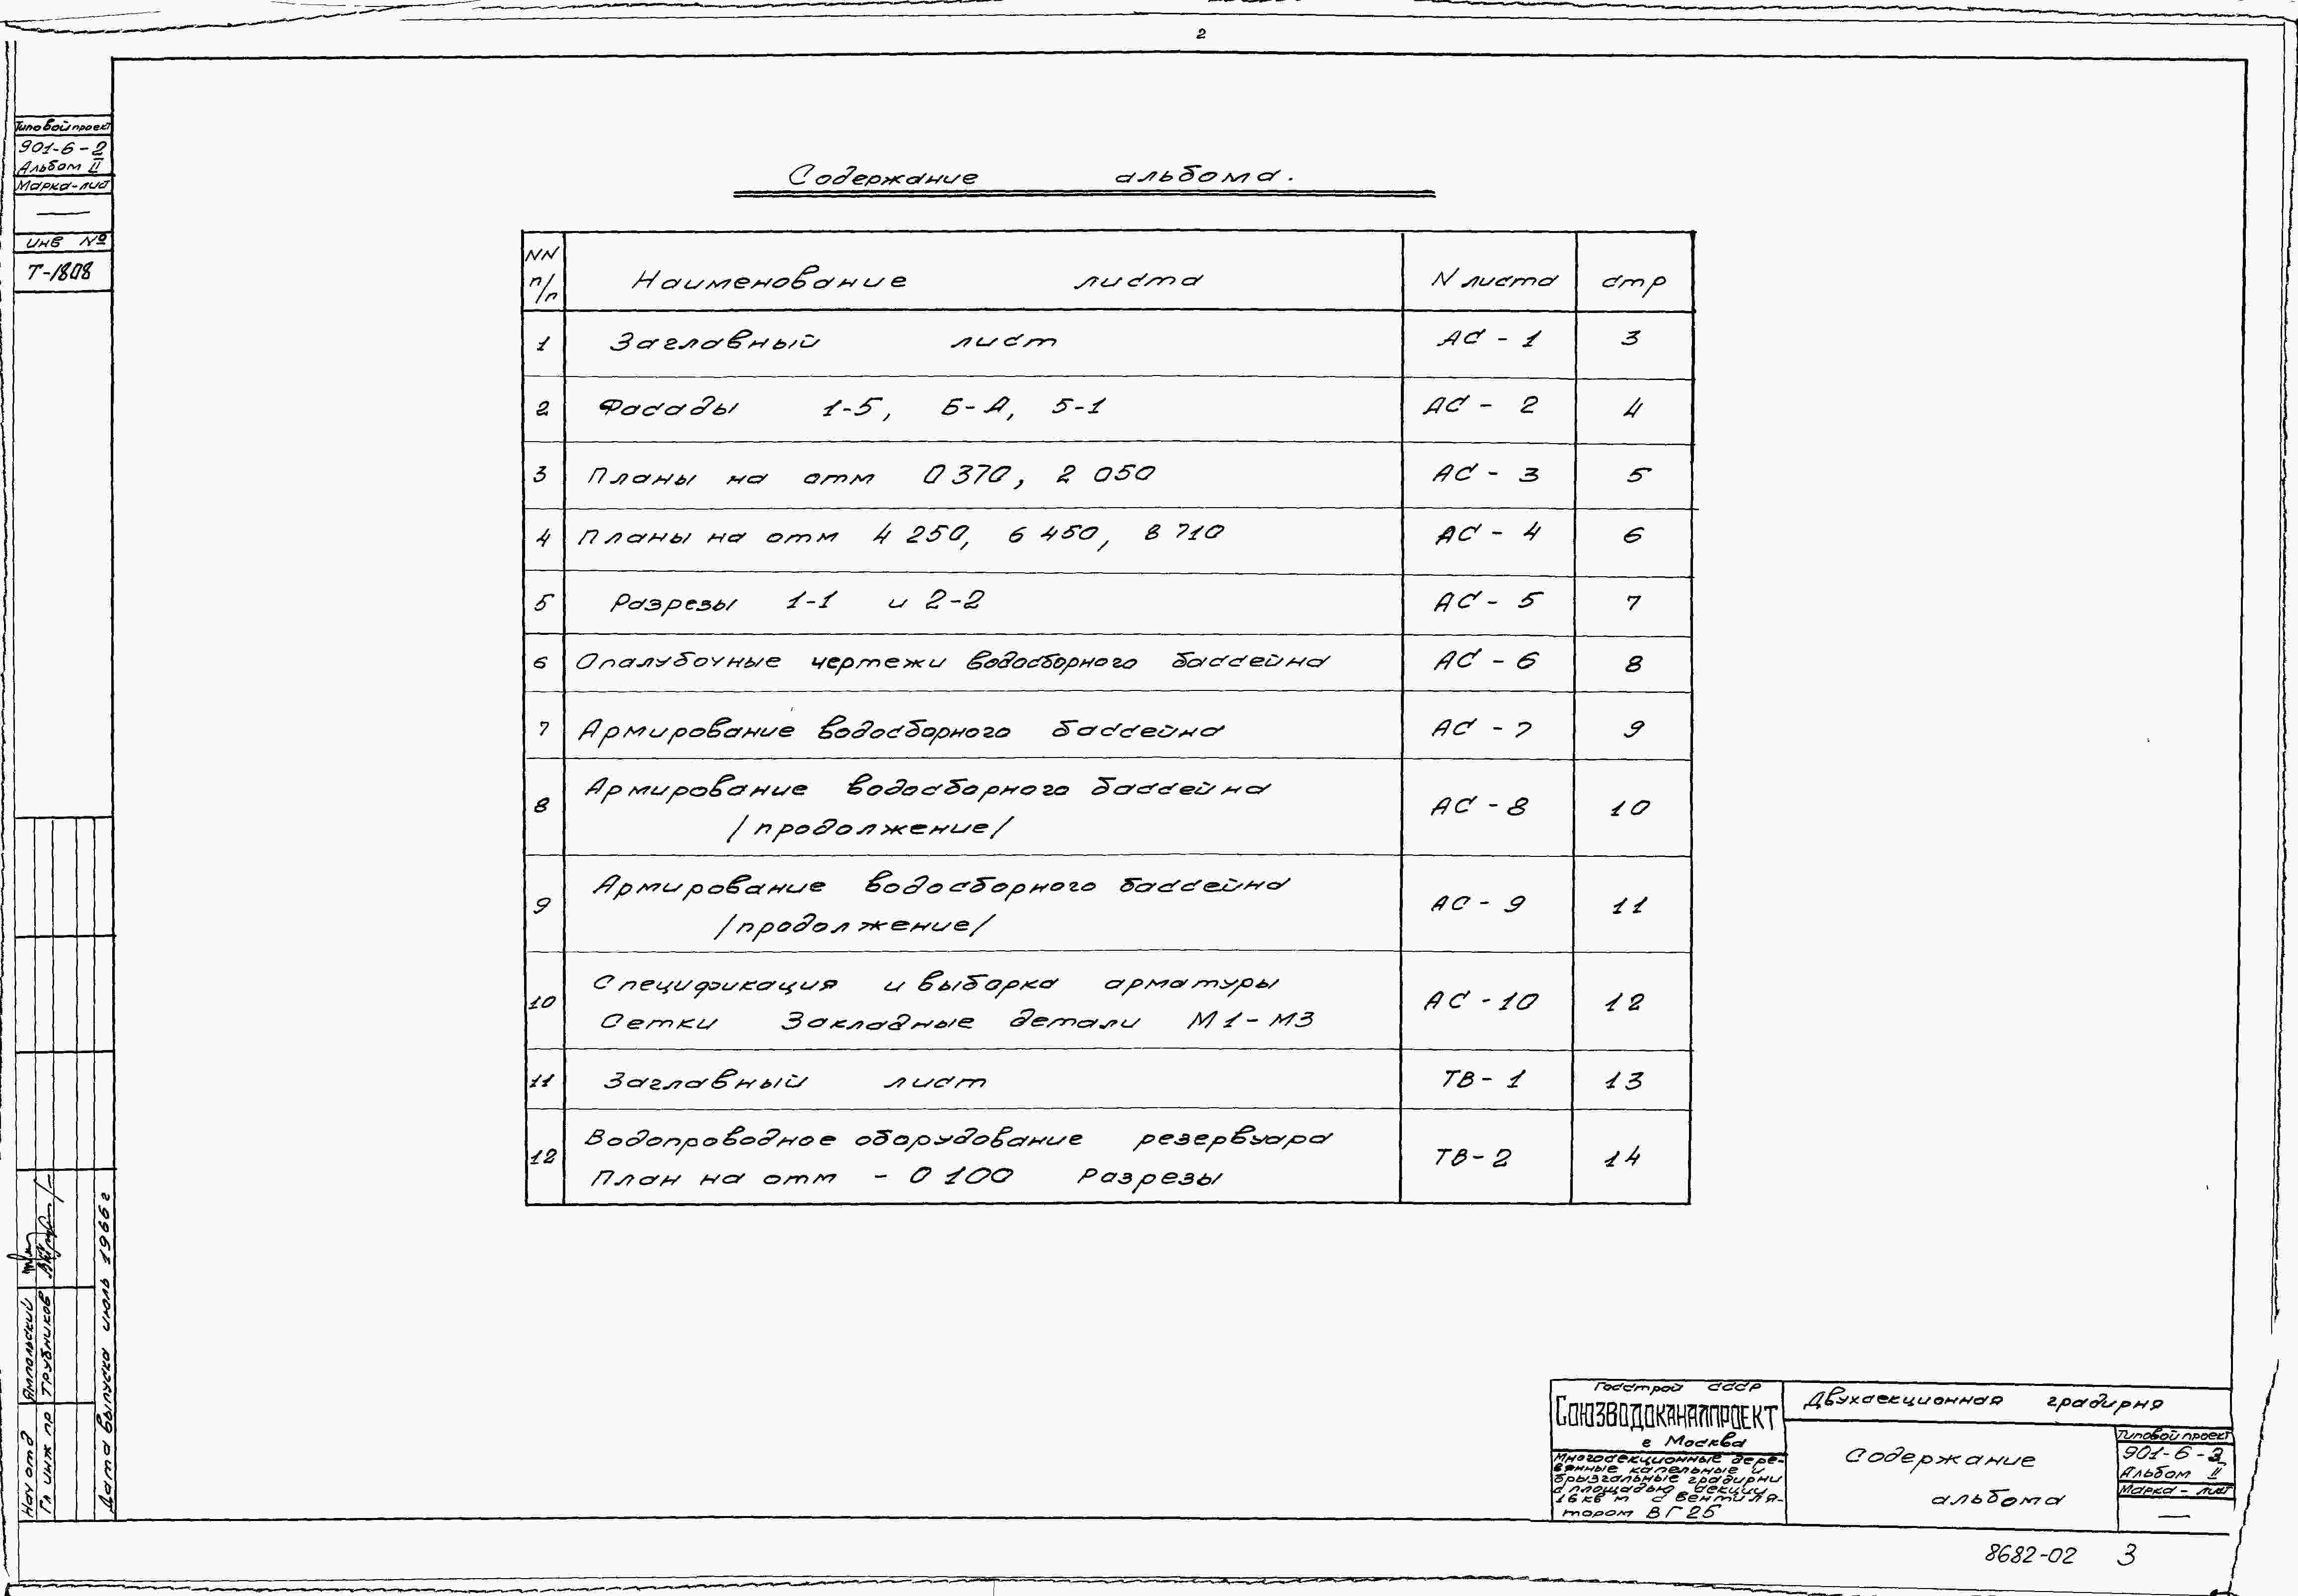 2
Типовой проект
901-6-2
Альбом II
Марка-лист
—
инв №
Т-1808
Содержание альбома.
NN п/п Наименование листа N листа стр
1 Заглавный лист АС - 1 3
2 Фасады 1-5, Б-А, 5-1 АС - 2 4
3 Планы на отм 0 370, 2 050 АС - 3 5
4 Планы на отм 4 250, 6 450, 8 710 АС - 4 6
5 Разрезы 1-1 и 2-2 АС - 5 7
6 Опалубочные чертежи водосборного бассейна АС - 6 8
7 Армирование водосборного бассейна АС - 7 9
8 Армирование водосборного бассейна АС - 8 10
/продолжение/
9 Армирование водосборного бассейна АС - 9 11
/продолжение/
10 Спецификация и выборка арматуры АС - 10 12
Сетки Закладные детали М1-М3
11 Заглавный лист ТВ - 1 13
12 Водопроводное оборудование резервуара ТВ-2 14
План на отм - 0 100 Разрезы
Нач отд Ямпольский
Гл инж пр Трубников
Дата выпуска июль 1966 г
Госстрой СССР
СОЮЗВОДОКАНАЛПРОЕКТ
г Москва
Многосекционные дере-
вянные капельные и
брызгальные градирни
с площадью секции
16 кв м с вентиля-
тором ВГ 25
Двухсекционная градирня
Содержание
альбома
Типовой проект
901-6-
Альбом II
Марка - лист
—
8682-02 3